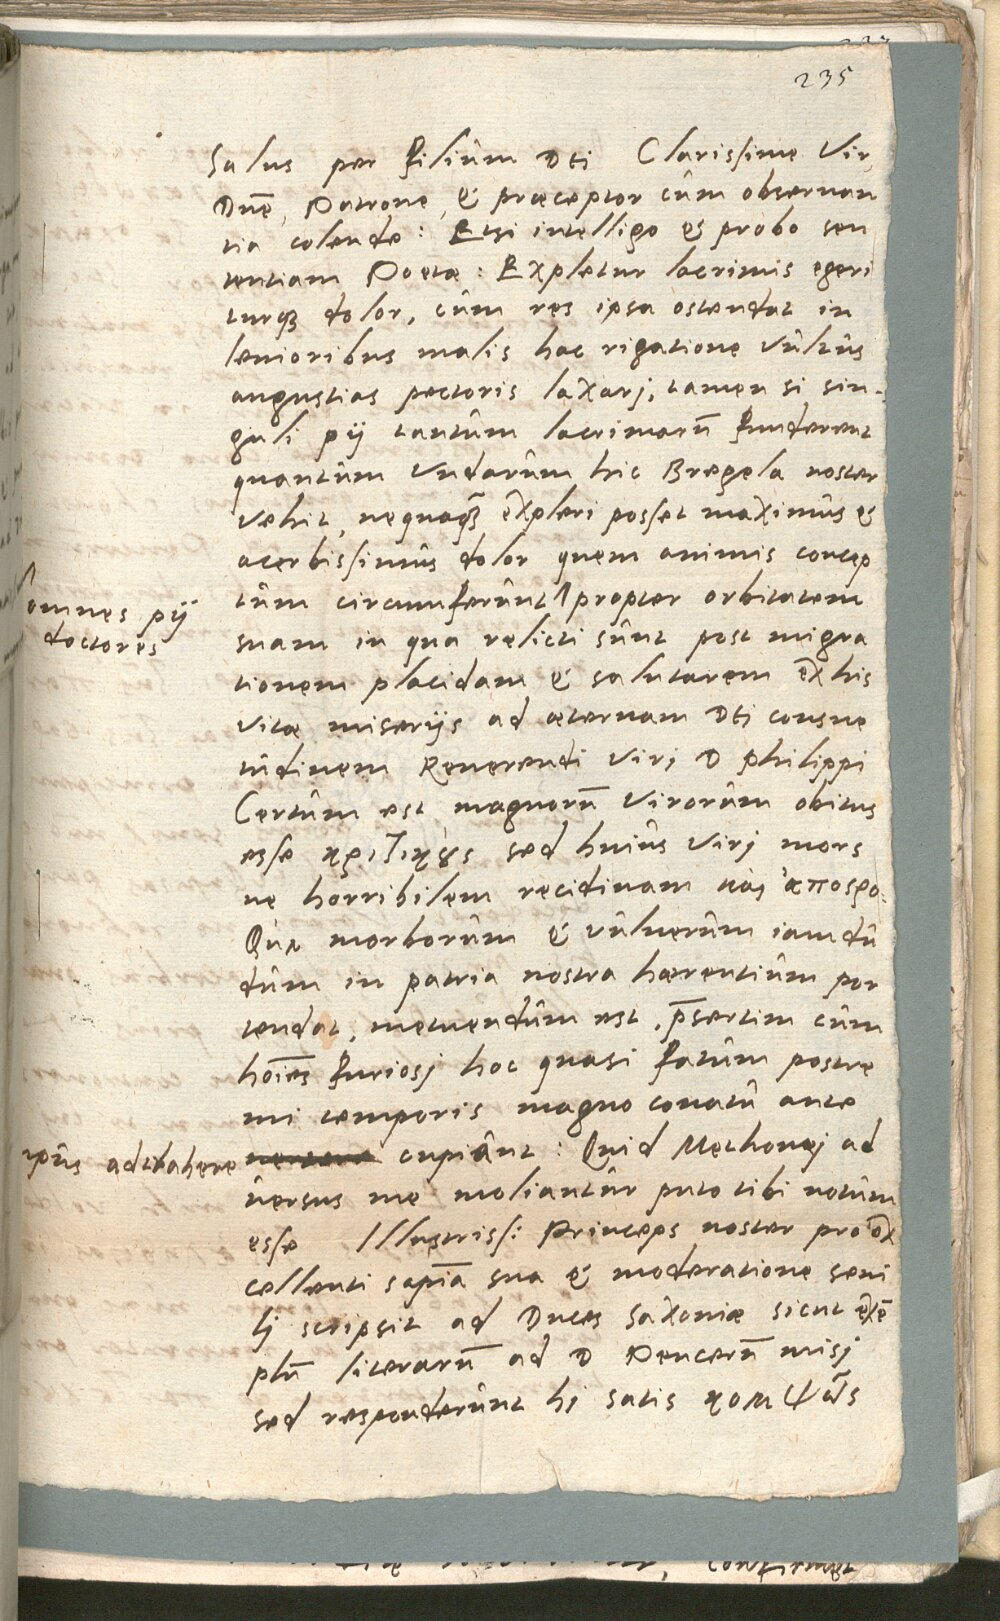 235
Salus per filium Dei Clarissime Vir,
Dne, Patrone, & præceptor cum obseruan
tia colende: Etsi intelligo et probo sen
tentiam Poetæ: Expletur lacrimis egeri
turq dolor, cum res ipsa ostendat in
lenioribus malis hac rigatione vultus
angustias pectoris laxarj, tamen si sin-
guli pij tantum lacrimarū funderent
quantum Vndarum hic Bregela noster
vehit, nequaq expleri posset maximus et
acerbissimus dolor quem animis concep
tum circumferunt ⌈ propter orbitatem
⌈ omnes pij
doctores
suam in qua relicti sunt post migra
tionem placidam & salutarem ex his
vitæ miserijs ad æternam Dei consue
tudinem Reuerendi Virj D Philippi
Certum est magnorū Virorum obitus
esse κριτικȣς sed huius Virj mors
ne horribilem recidiuam καὶ ἀποσρο
Quæ morborum & vulnerum iamdu
dum in patria nostra hærentium por
tendat, metuendum est, p̄sertim cum
hoīes furiosj hoc quasi fatum postre
mi temporis magno conatu ante
adtrahere cupiant: Quid Mechouej ad
uersus me moliantur puto tibi notum
esse Illustriss: Princeps noster pro ex
cellenti sapīa sua & moderatione seni
lj scripsit ad Duces Saxoniæ sicut exē
plū literarū ad D Peucerū misj
sed responderunt hj satis κομψῶς
confirmet